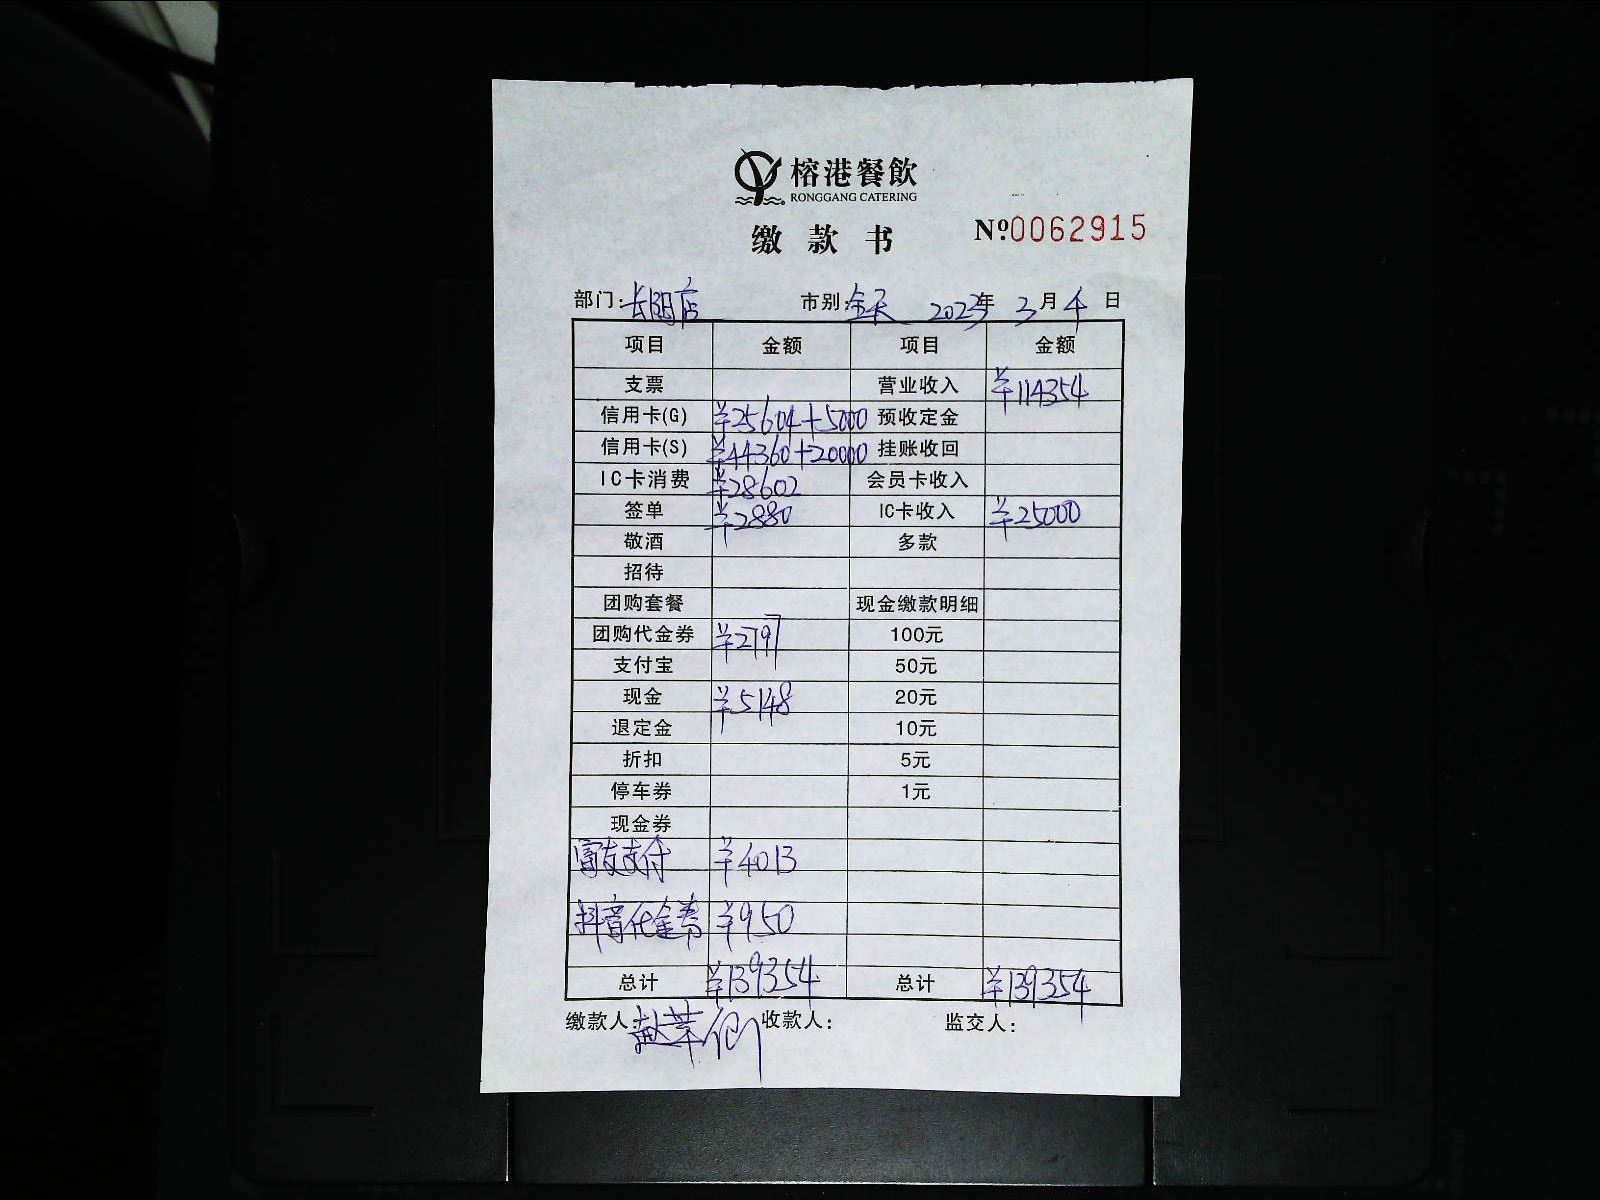 榕港餐飲
RONGGANG CATERING
缴款书 Nº0062915
部门:长阳店 市别:全天 2023年 3月 4日
项目 金额 项目 金额
支票 营业收入 ¥114354
信用卡(G) ¥25604+5000 预收定金
信用卡(S) ¥44360+20000 挂账收回
IC卡消费 ¥28602 会员卡收入
签单 ¥2880 IC卡收入 ¥25000
敬酒 多款
招待
团购套餐 现金缴款明细
团购代金券 ¥2797 100元
支付宝 50元
现金 ¥5148 20元
退定金 10元
折扣 5元
停车券 1元
现金券
支付 ¥4013
抖音代金券 ¥950
总计 ¥139354 总计 ¥139354
缴款人: 收款人: 监交人: